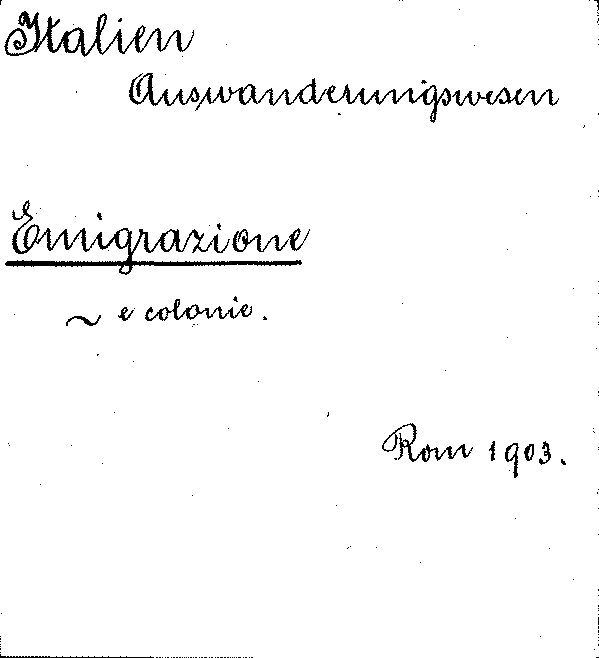 Italien
Auswanderungswesen
Emigrazione
~ e colonie.
Rom 1903.